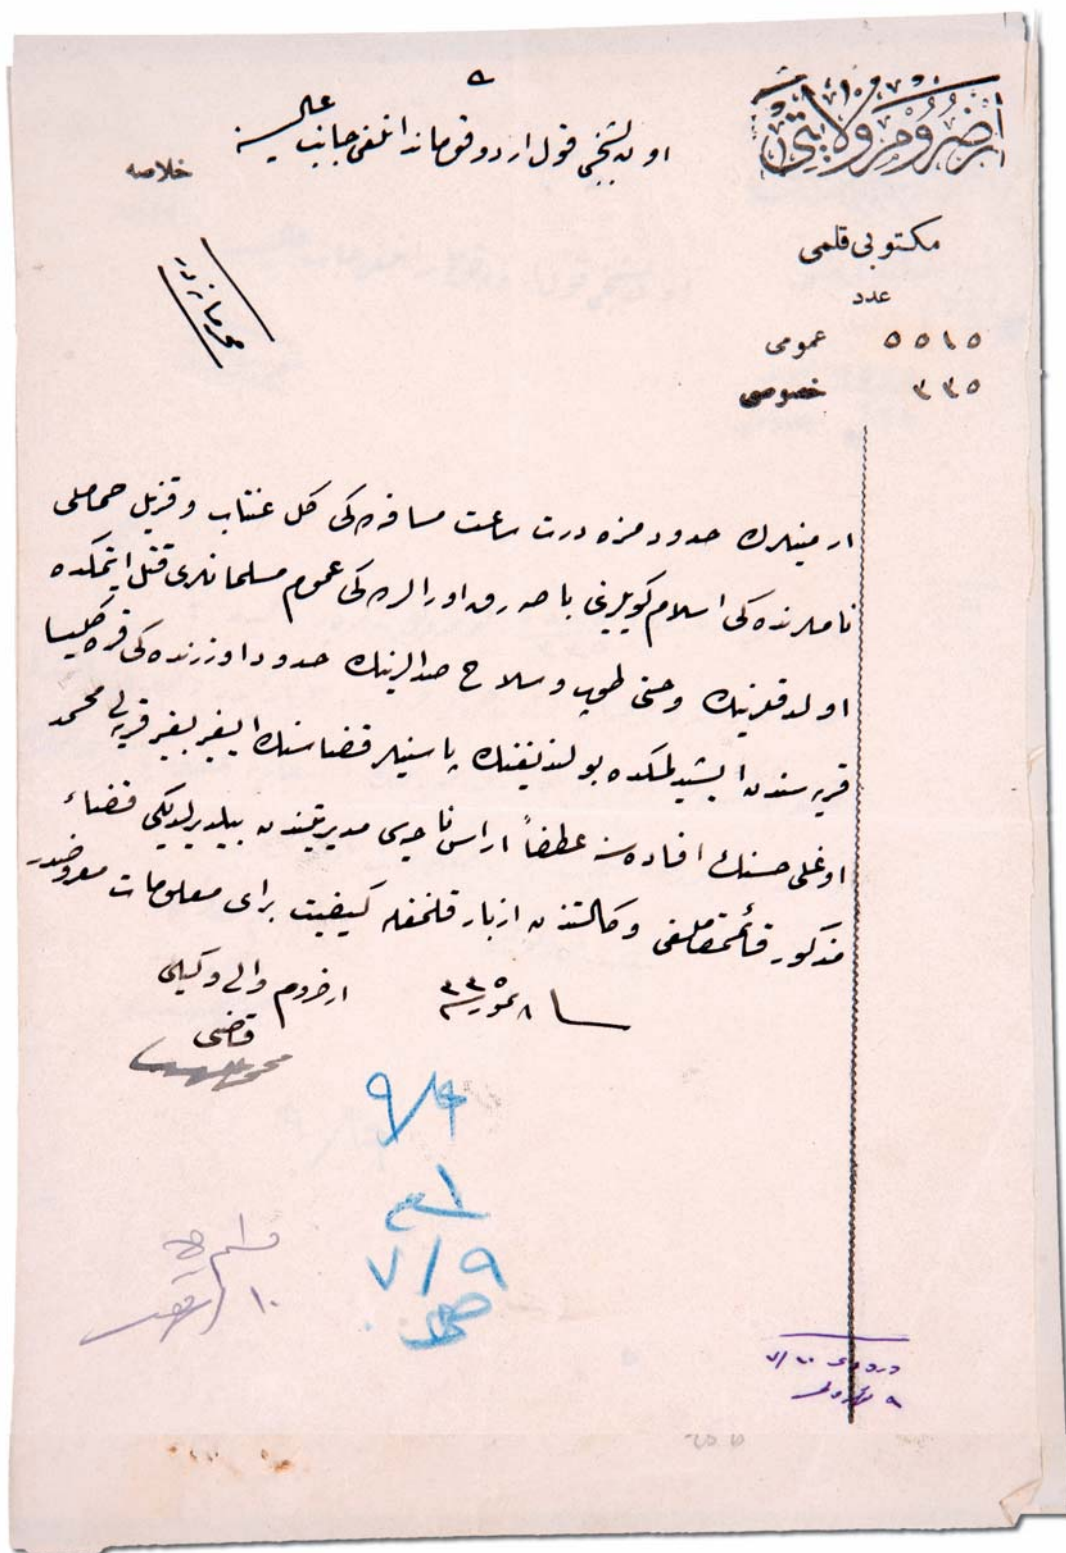 ارضروم ولايتى
مكتوبى قلمى
عدد
٥٥١٥ عمومى
٣٣٥ خصوصى
اون بشنجى قول اردو قوماندانلغى جانب عاليسنه
خلاصه
محرمانه در
ارمنيلرك حدودمزه درت ساعت مسافه ده كى كل عنتاب و قزيل حماملى
ناملرنده كى اسلام كويلرينى باصه رق اورالرده كى عموم مسلمانلرى قتل ايتمكده
اولدقلرينك وحتى طوپ و سلاح صدالرينك حدود اوزرنده كى قره كليسا
قريه سندن ايشيدلمكده بولنديغنك پاسينلر قضاسنك قريه لى محمد
اوغلى حسنك افاده سنه عطفاً اراس ناحيه سى مديريتندن بيلديرلديكى قضاء
مذكور قائممقاملغى وكالتندن ازبار قلنمغله كيفيت براى معلومات معروضدر
٨ تموز سنه ٣٣٥
ارضروم والى وكيلى
قاضى
٩/٧
٧/٩